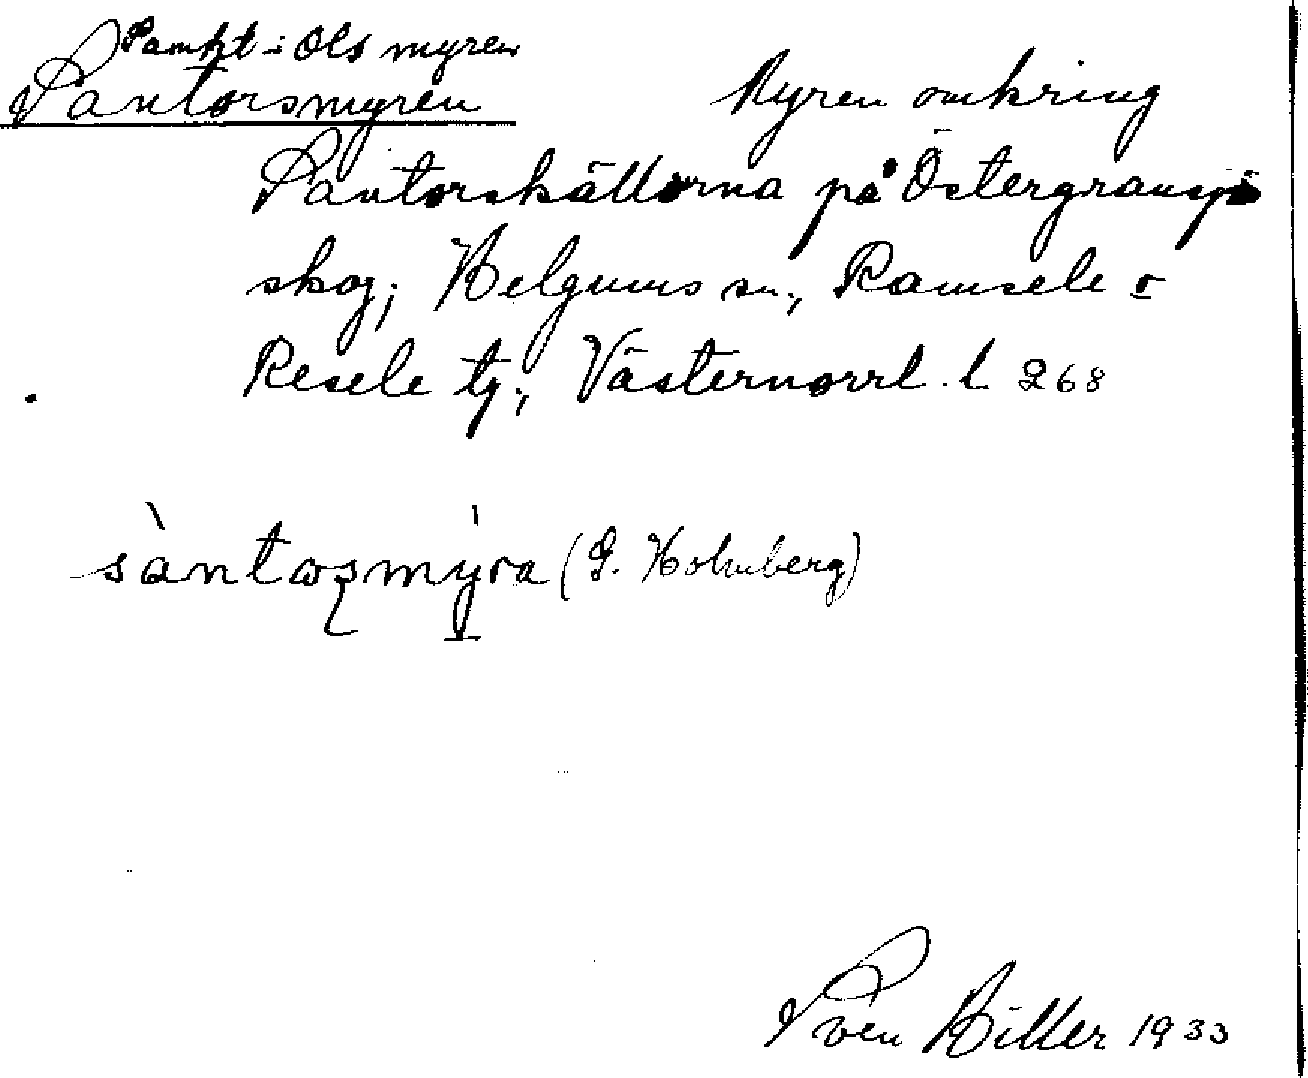 Sankt-Ols myren
Santorsmyren
Myren omkring
Santorskällorna på Östergransjö
skog; Helgums sn., Ramsele o
Resele tg., Västernorrl. l. 268
sàntoșmỳra (G. Holmberg)
Sven Hiller 1933